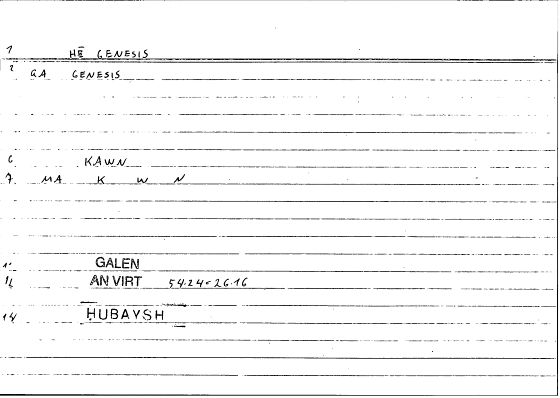 1 HĒ GENESIS
2 GA GENESIS
6 KAWN
7 MA K W N
11 GALEN
12 AN VIRT 54.24=26.16
14 HUBAYSH